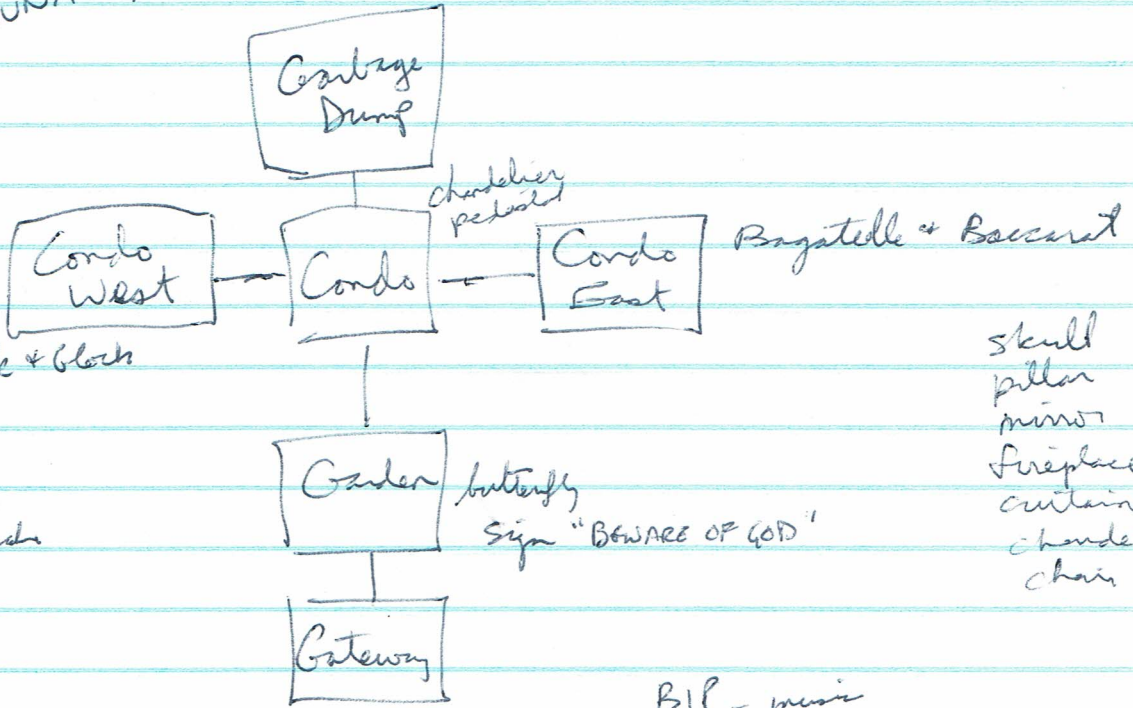 Garbage
Dump
chandelier
pedestal
Condo
West
Condo
Condo
East
Bagatelle & Baccarat
& Glock
skull
pillar
mirror
fireplace
curtain
chande
chair
Garden
butterfly
Sign "BEWARE OF GOD"
Gateway
music